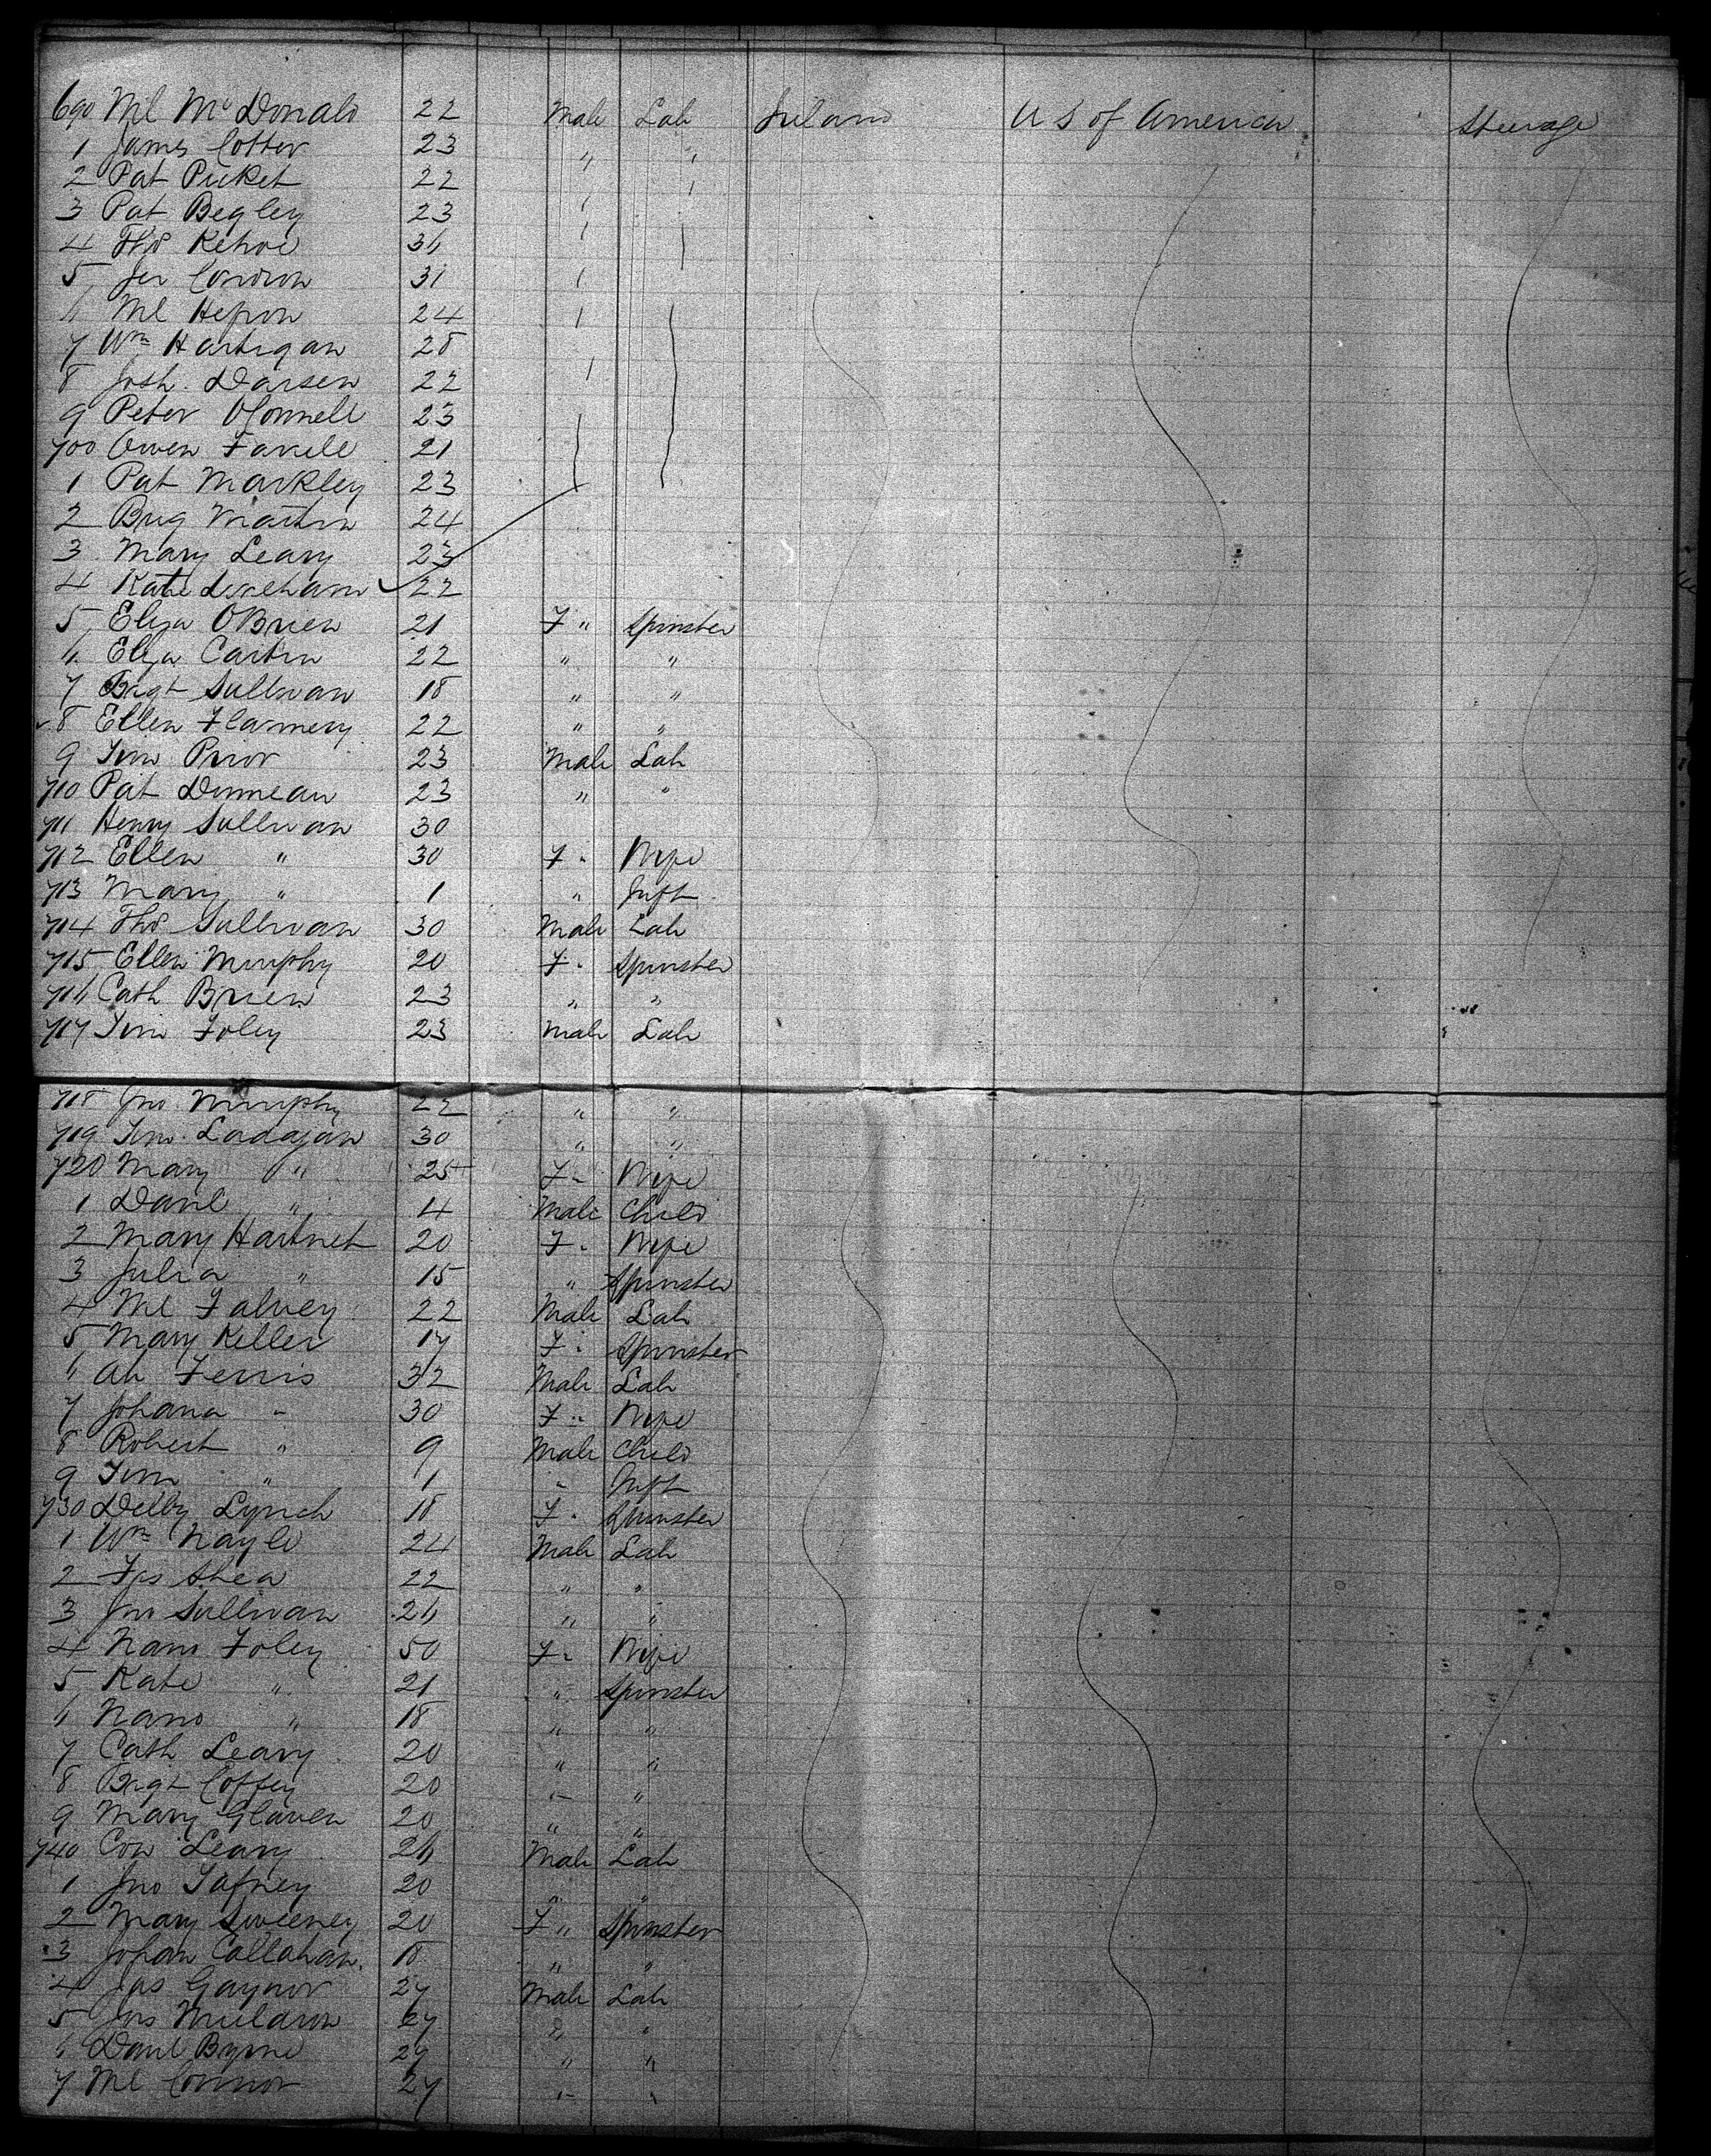 690 Ml McDonald 22 Male Lab Ireland U S of America Steerage
1 James Cotter 23 " "
2 Pat Picket 22
3 Pat Begley 23
4 Thos Kehoe 36
5 Jer Condron 31
6 Ml Hefron 24
7 Wm Hartigan 28
8 Josh. Darsen 22
9 Peter OConnell 23
700 Owen 21
1 Pat Markley 23
2 Brig Martin 24
3 Mary Leary 23
4 Kate 22
5 Eliza OBrien 21 F " Spinster
6 Eliza 22 " "
7 Brigt Sullivan 18 " "
8 Ellen Flannery 22 " "
9 Tim Prior 23 Male Lab
710 Pat Dinnean 23 " "
711 Henry Sullivan 30
712 Ellen " 30 F " Wife
713 Mary " 1 " Inft
714 Thos Sullivan 30 Male Lab
715 Ellen Murphy 20 F " Spinster
716 Cath Brien 23 " "
717 Tim Foley 23 Male Lab
718 Jno Murphy 22 " "
719 Tim 30 " "
720 Mary " 25 F " Wife
1 Danl " 4 Male Child
2 Mary Hartnet 20 F " Wife
3 Julia " 15 " Spinster
4 Ml Falvey 22 Male Lab
5 Mary Keller 17 F " Spinster
6 Ferris 32 Male Lab
7 Johana " 30 F " Wife
8 Robert " 9 Male Child
9 Tim " 1 " Inft
730 Lynch 18 F " Spinster
1 Wm Nayle 24 Male Lab
2 Shea 22 " "
3 Jno Sullivan 26 " "
4 Nano Foley 50 F " Wife
5 Kate " 21 " Spinster
6 Nano " 18 " "
7 Cath Leary 20 " "
8 Brigt Coffey 20 " "
9 Mary Glaven 20 " "
740 Con Leary 26 Male Lab
1 Jno 20 " "
2 Mary Sweeney 20 F " Spinster
3 Johan Callahan 18 " "
4 Jas Gaynor 27 Male Lab
5 Jas Muldoon 27 " "
6 Danl Byrne 27 " "
7 Ml Connor 27 " "